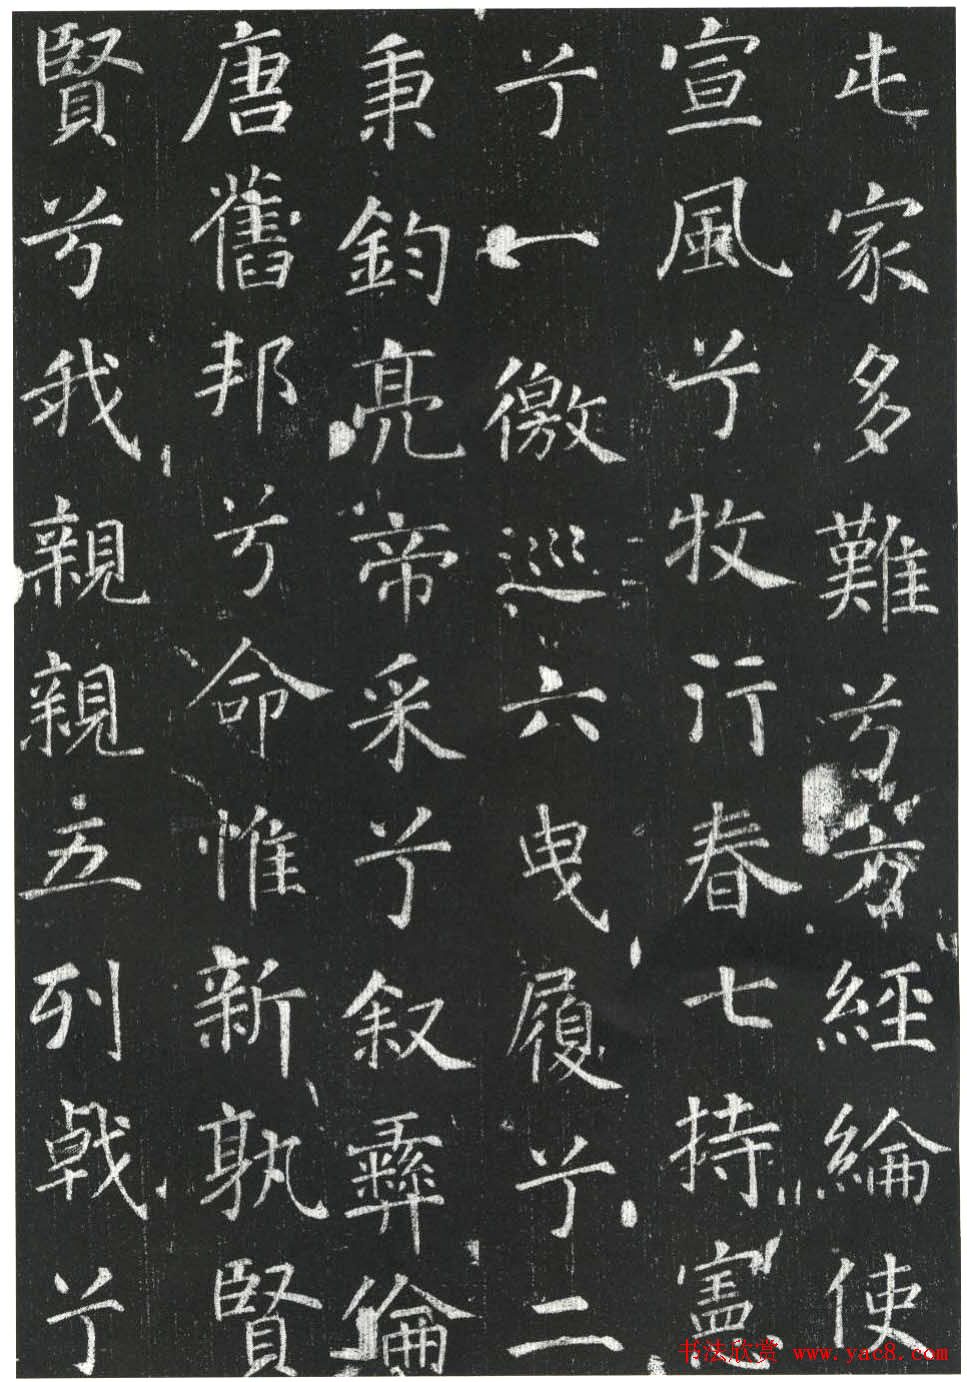 屯家多難兮方經綸使
宣風兮牧行春七持憲
兮一徼巡六曳履兮二
秉鈞亮帝采兮叙彝倫
唐舊邦兮命惟新孰賢
賢兮我親親立列戟兮
书法欣赏 www.yac8.com